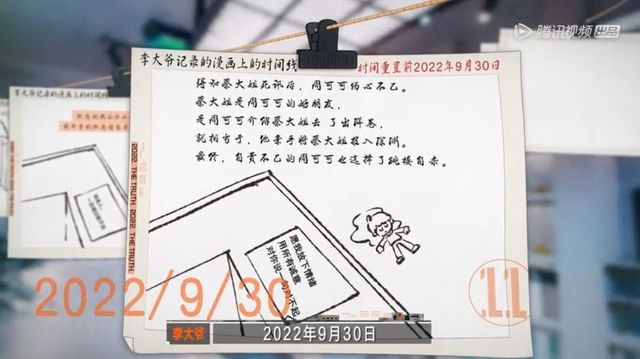 腾讯视频 出品
李大爷记录的漫画上的时间线
时间重置前2022年9月30日
得知蔡大姐死讯后，周可可伤心不已。
蔡大姐是周可可的好朋友，
是周可可介绍蔡大姐去了出科卷，
就相当于，他亲手将蔡大姐推入深渊。
最终，自责不已的周可可也选择了跳楼自杀。
愿我放下情绪
用所有诚意
对你说一句对不起
李大爷记录的漫画上的时间线
2022. THE TRUTH. 2022. THE TRUTH.
2022/9/30
11
李大爷
2022年9月30日